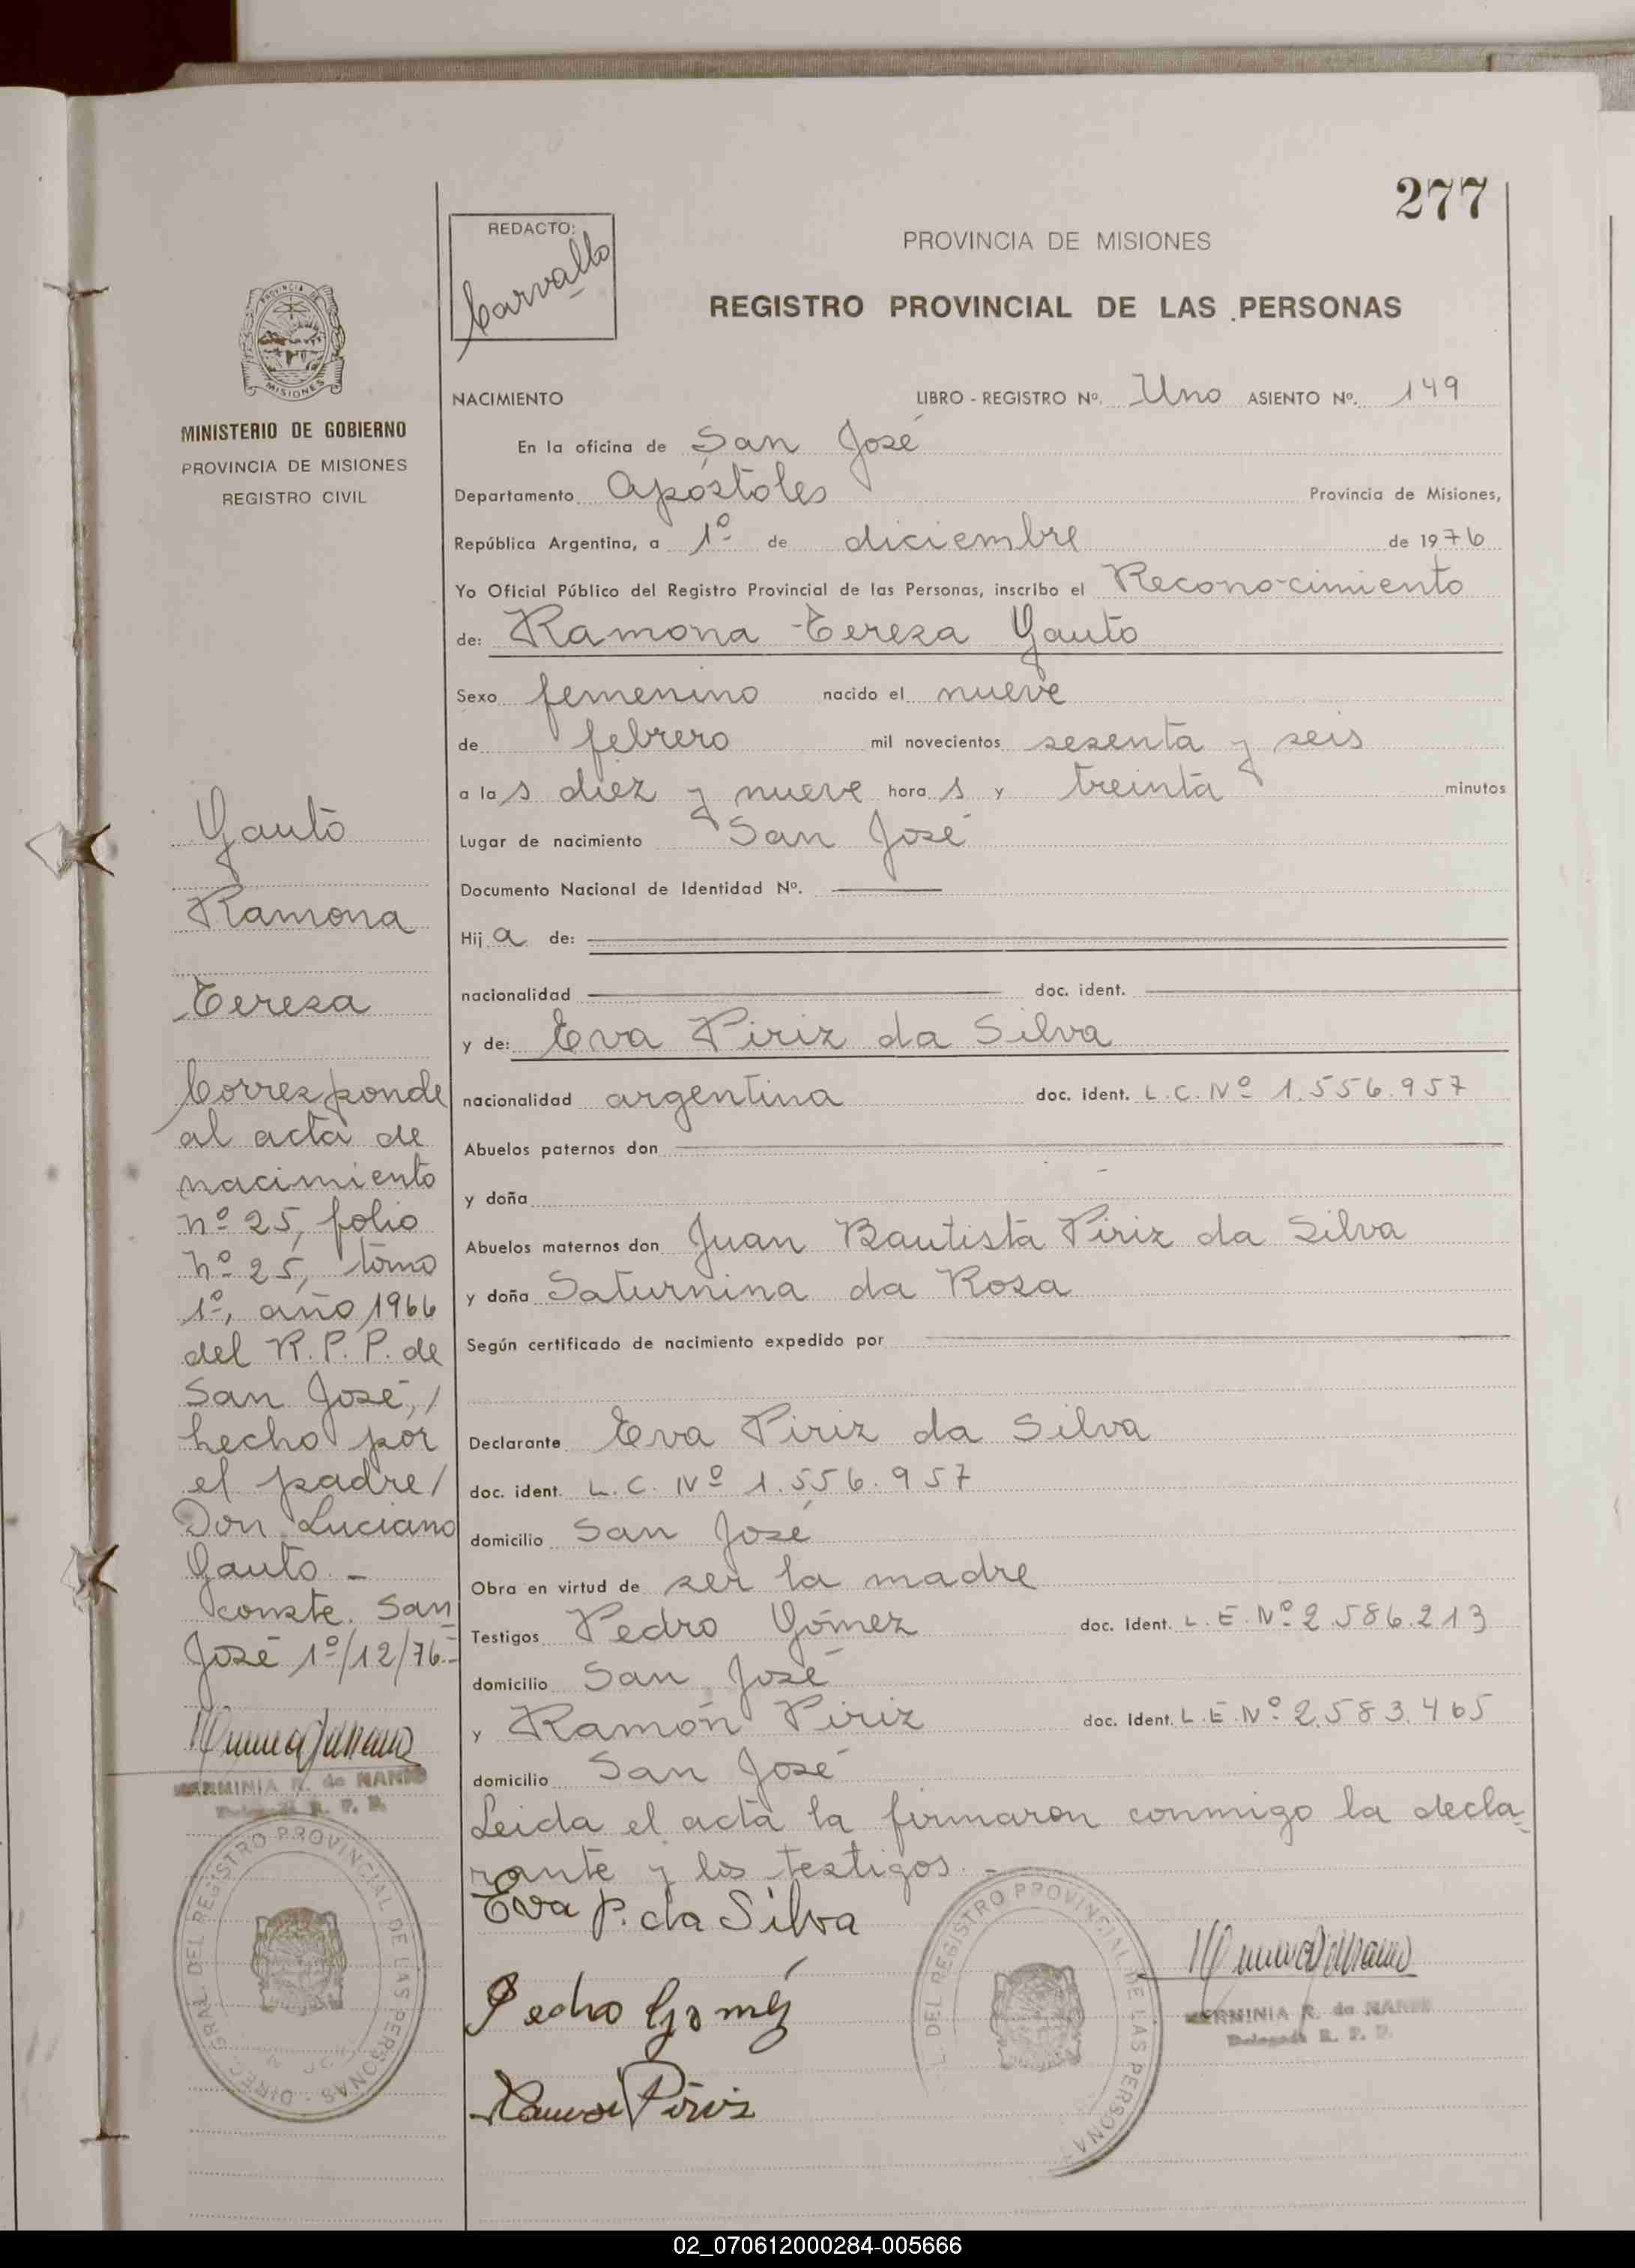 277
REDACTO:
Carvallo
PROVINCIA DE MISIONES
REGISTRO PROVINCIAL DE LAS PERSONAS
PROVINCIA DE
MISIONES
MINISTERIO DE GOBIERNO
PROVINCIA DE MISIONES
REGISTRO CIVIL
NACIMIENTO LIBRO - REGISTRO Nº. Uno ASIENTO Nº. 149
En la oficina de San José
Departamento Apóstoles Provincia de Misiones,
República Argentina, a 1º de diciembre de 1976
Yo Oficial Público del Registro Provincial de las Personas, inscribo el Reconocimiento
de: Ramona Tereza Gauto
Sexo femenino nacido el nueve
de febrero mil novecientos sesenta y seis
a las diez y nueve horas y treinta minutos
Lugar de nacimiento San José
Documento Nacional de Identidad Nº.
Hija de:
nacionalidad doc. ident.
y de: Eva Piriz da Silva
nacionalidad argentina doc. ident. L.C. Nº 1.556.957
Abuelos paternos don
y doña
Abuelos maternos don Juan Bautista Piriz da Silva
y doña Saturnina da Rosa
Según certificado de nacimiento expedido por
Declarante Eva Piriz da Silva
doc. ident. L.C. Nº 1.556.957
domicilio San José
Obra en virtud de ser la madre
Testigos Pedro Gómez doc. ident. L.E. Nº 2.586.213
domicilio San José
y Ramón Piriz doc. ident. L.E. Nº 2.583.465
domicilio San José
Leida el acta la firmaron conmigo la decla
rante y los testigos.-
Eva P. da Silva
Pedro Goméz
Ramon Piriz
Gauto
Ramona
Tereza
Corresponde
al acta de
nacimiento
nº 25, folio
nº 25, tomo
1º, año 1966
del R.P.P. de
San José, /
hecho por
el padre /
Don Luciano
Gauto.-
conste. San
José 1º/12/76.-
HERMINIA R. de
Delegada R. P. P.
DIREC. GRAL. DEL REGISTRO PROVINCIAL DE LAS PERSONAS
L. DEL REGISTRO PROVINCIAL DE LAS PERSONA
HERMINIA R. de
Delegada R. P. P.
02_070612000284-005666